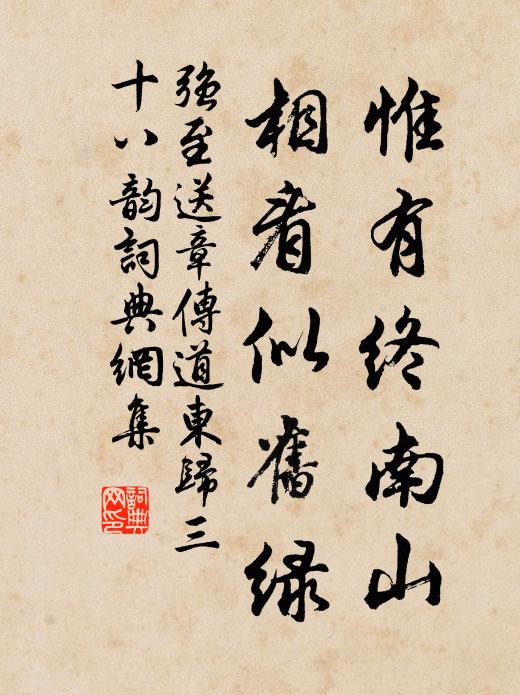 惟有终南山
相看似舊绿
强至送章傳道東歸三
十八韵詞典網集
詞典网印